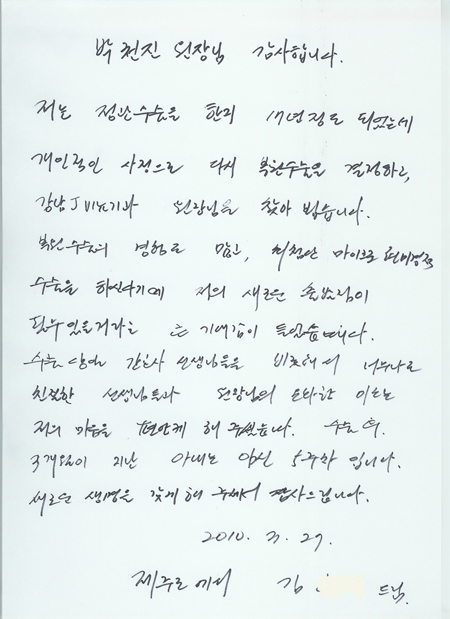 박천진 원장님 감사합니다.
저는 정관수술을 한지 17년정도 되었는데
개인적인 사정으로 다시 복원수술을 결정하고,
강남J비뇨기과 원장님을 찾아 뵙습니다.
복원수술의 경험도 많고, 최첨단 마이크로 현미경적
수술을 하신다기에 저의 새로운 출발점이
될수 있을거라는 큰 기대감이 들었습니다.
수술 당일 간호사 선생님들을 비롯해서 너무나도
친절한 선생님들과 원장님의 온화한 미소는
저의 마음을 편안게 해 주셨습니다. 수술 후.
3개월이 지난 아내는 임신 5주차 입니다.
새로운 생명을 갖게 해 주셔서 감사드립니다.
2010. 3. 27.
제주도에서 김 드림.